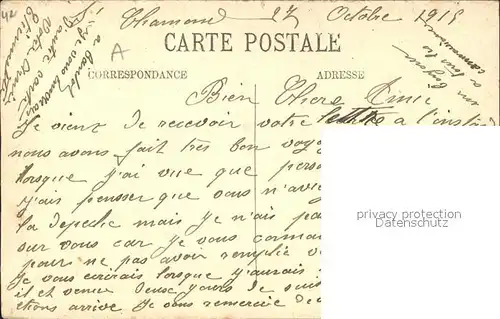 42
Chamond 27 Octobre 1915
A
CARTE POSTALE
CORRESPONDANCE
ADRESSE
a bientôt
je vous
Votre Amie
Bien Chere Amie
Je viens de recevoir votre lettre a l'instant
nous avons fait tres bon voy
lorsque j'ai vue que pers
j'ais penser que vous n'avie
la depeche mais je n'ais pa
sur vous car je vous connai
pour ne pas avoir remplie v
Je vous ecrirais lorsque j'aurais
il et venu deux jours de suis
etions arrive. Je vous remercie de
privacy protection
Datenschutz